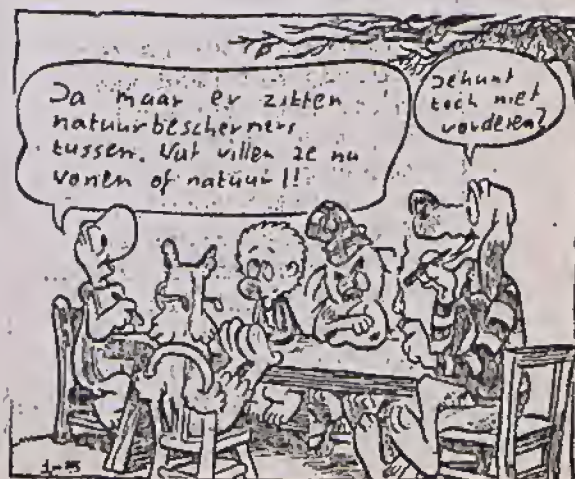 Ja maar er zitten
natuurbeschermers
tussen. Wat willen ze nu
wonen of natuur!!
Je kunt
toch niet